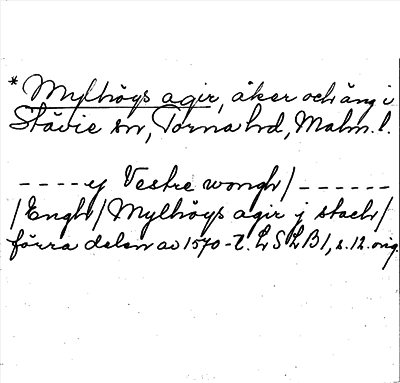 * Mylhöys agir, åker och äng i
Stävie sn, Torna hd, Malm. l.
- - - - ej Vestre wongh / - - - - - -
/ Engh / Mylhöys agir j stach /
förra delen av 1570-t. LSLB 1, s. 12. orig.